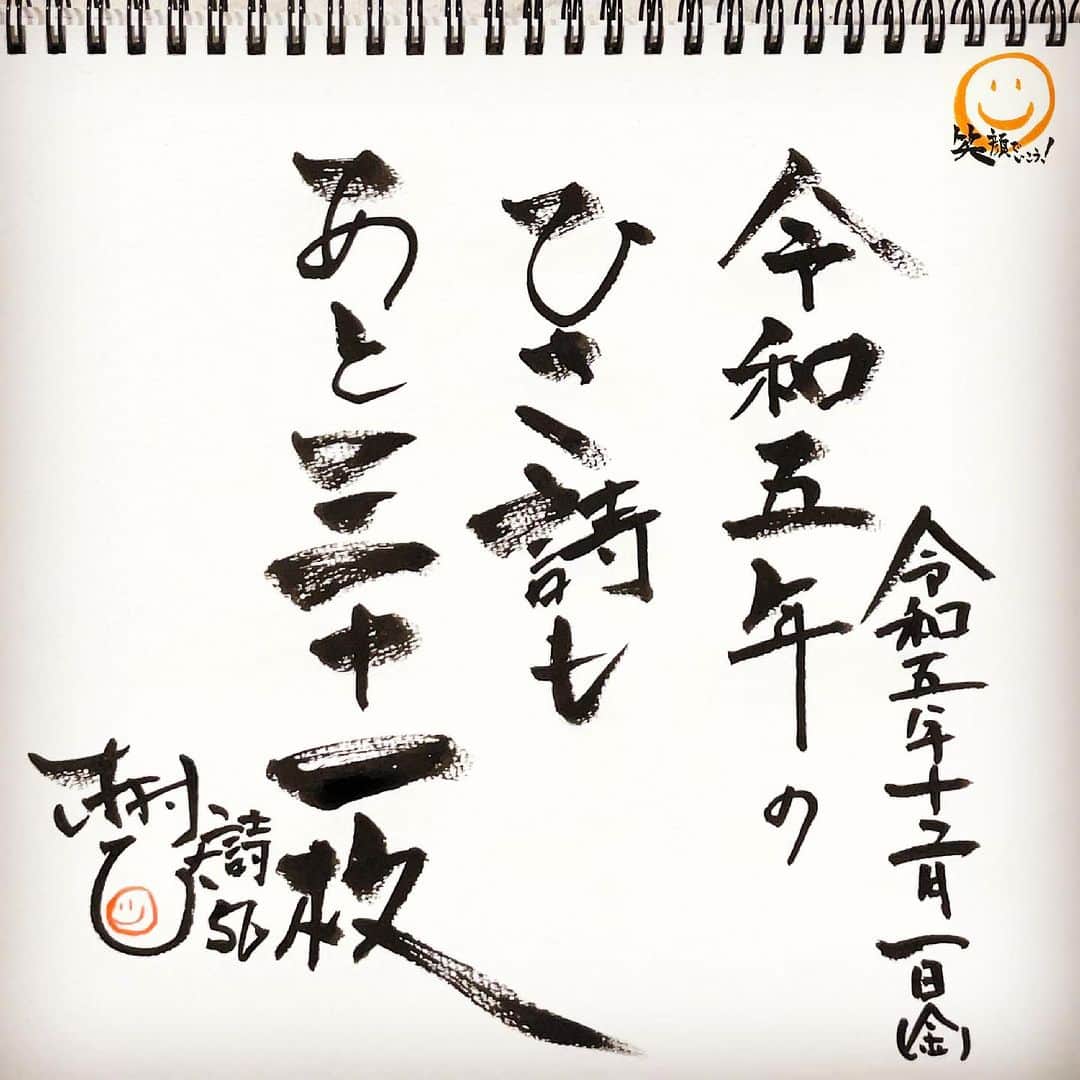 笑顔でいこう!
令和五年十二月一日(金)
令和五年の
ひさ詩も
あと三十一枚